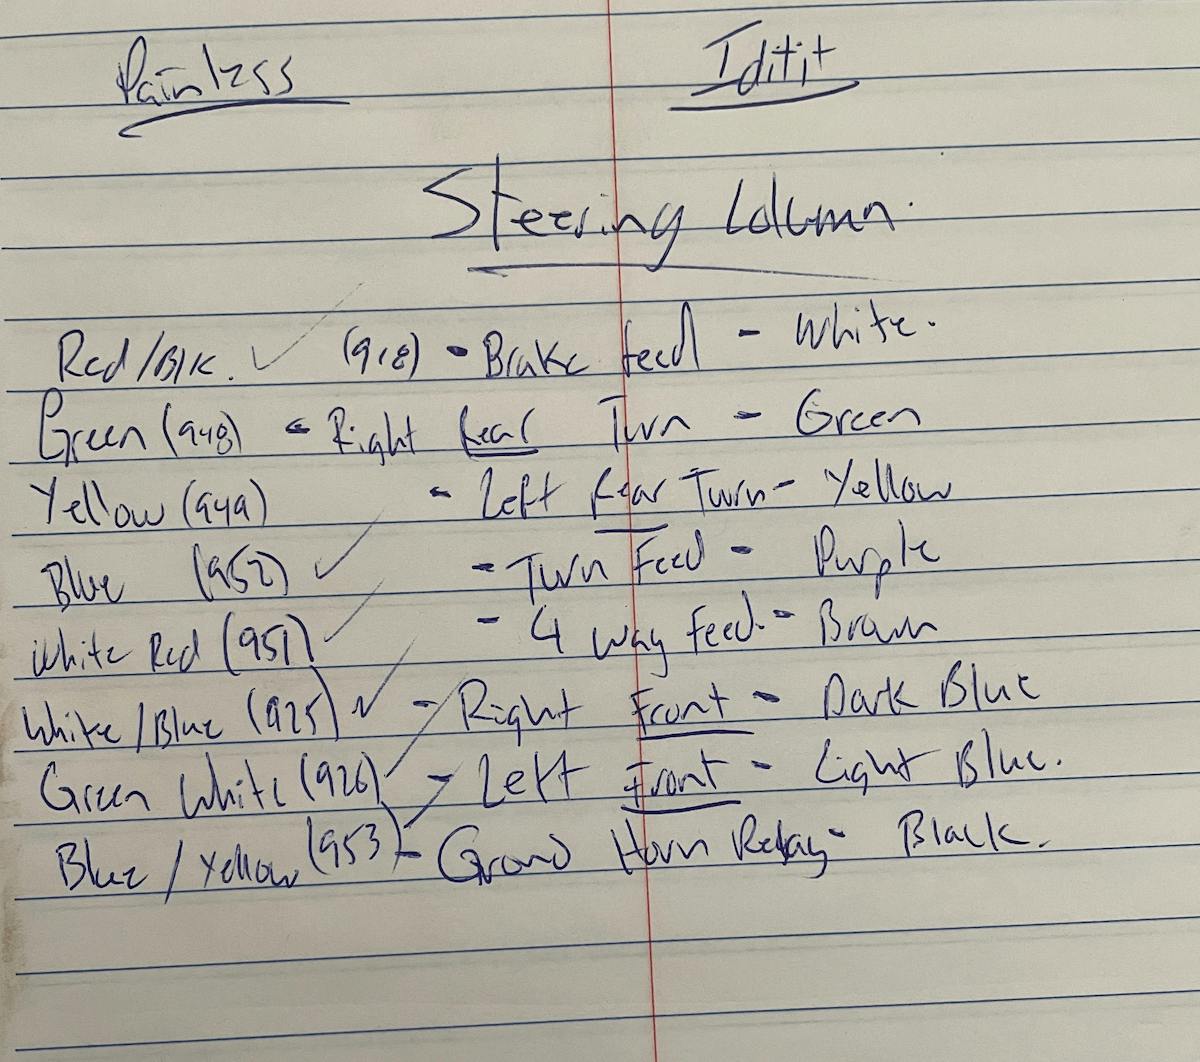 Painless Iditit
Steering Column.
Red/Blk. ✓ (918) - Brake feed - White.
Green (948) - Right Rear Turn - Green
Yellow (949) - Left Rear Turn - Yellow
Blue (952) ✓ - Turn Feed - Purple
White Red (951) ✓ - 4 way Feed. - Brown
White/Blue (925) ✓ - Right Front - Dark Blue
Green White (926) ✓ - Left Front - Light Blue.
Blue/Yellow (953) ✓ - Ground Horn Relay - Black.